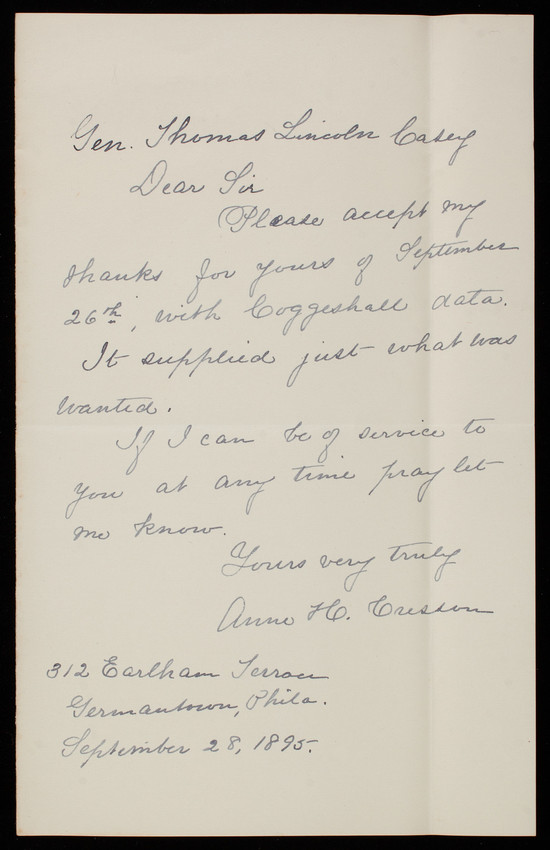 Gen. Thomas Lincoln Casey
Dear Sir
Please accept my
thanks for yours of September
26th, with Coggeshall data.
It supplied just what was
wanted.
If I can be of service to
you at any time pray let
me know.
Yours very truly
Anne H. Cresson
312 Earlham Terrace
Germantown, Phila.
September 28, 1895.